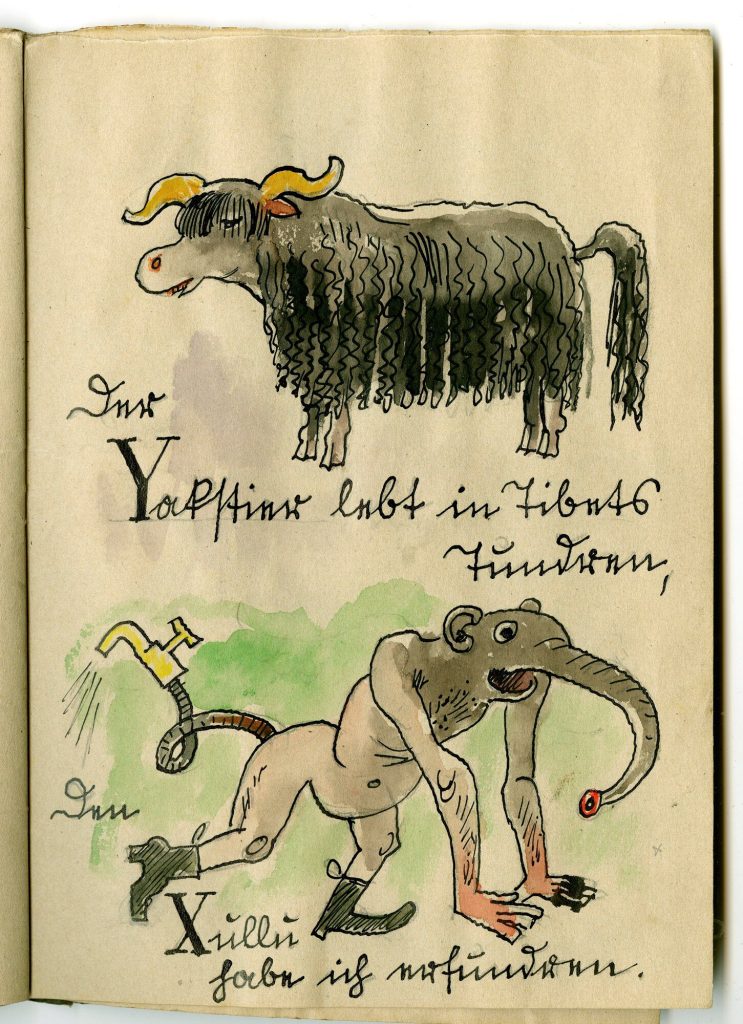 Der
Yakstier lebt in Tibets
Tundren,
Den
Xullu
habe ich erfundren.